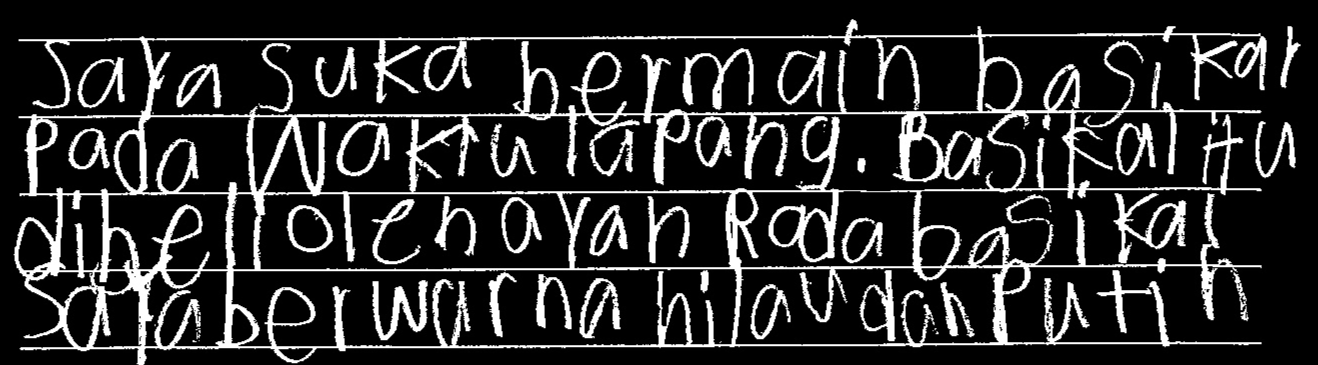 Saya suka bermain basikal
Pada Waktu lapang. Basikal itu
dibeli oleh ayah Roda basikal
Saya berwarna hijau dan Putih